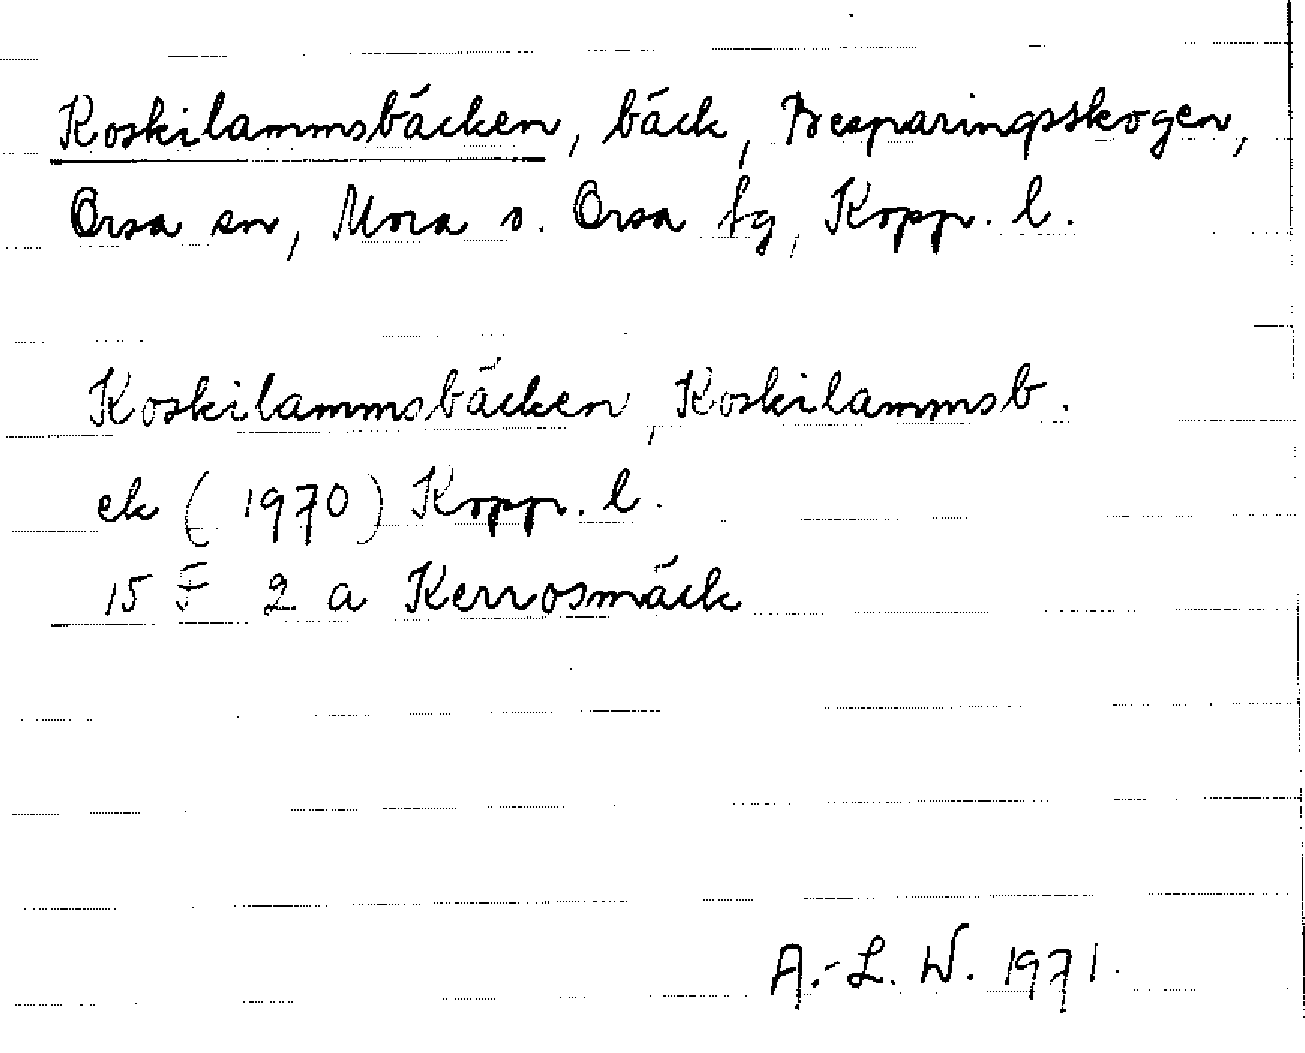 Koskilammsbäcken, bäck, Besparingsskogen,
Orsa sn, Mora o. Orsa tg, Kopp. l.
Koskilammsbäcken, Koskilammsb.
ek (1970) Kopp. l.
15 F 2 a Kerrosmäck
A.-L. W. 1971.